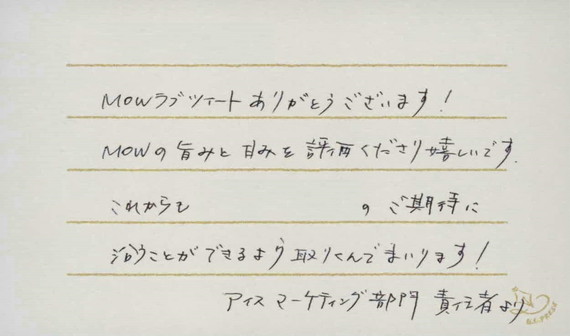 MOWラブツイートありがとうございます!
MOWの旨みと甘みを評価くださり嬉しいです.
これからも の ご期待に
沿うことができるよう取りくんでまいります!
アイス マーケティング部門 責任者より